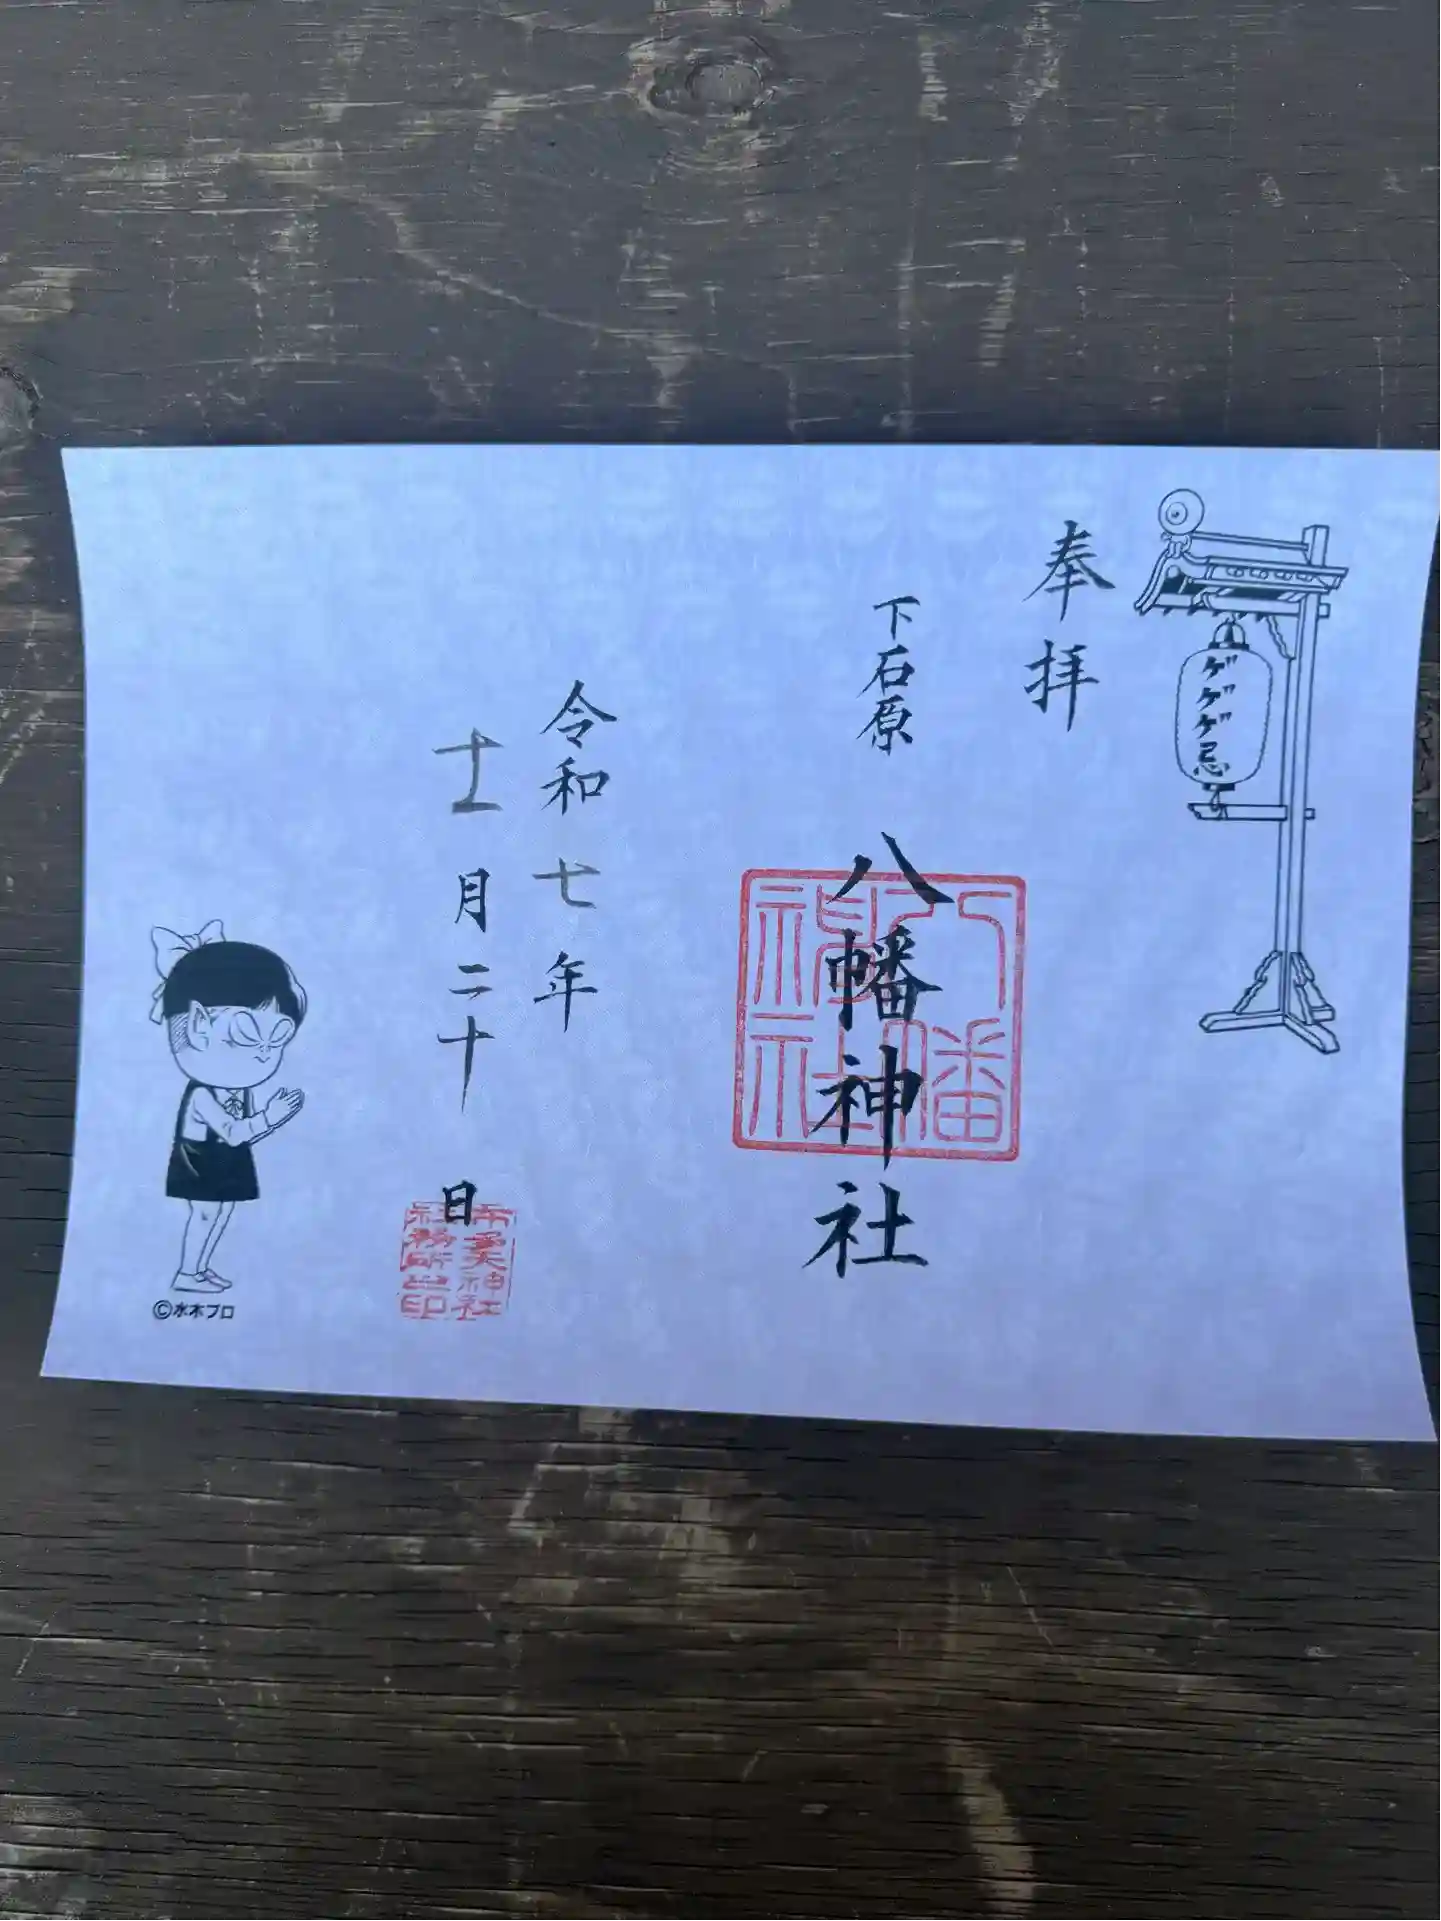 ゲゲゲ忌
奉拝
下石原
八幡神社
八幡
神社
令和七年
十一月二十日
布多天神社
社務所之印
©水木プロ